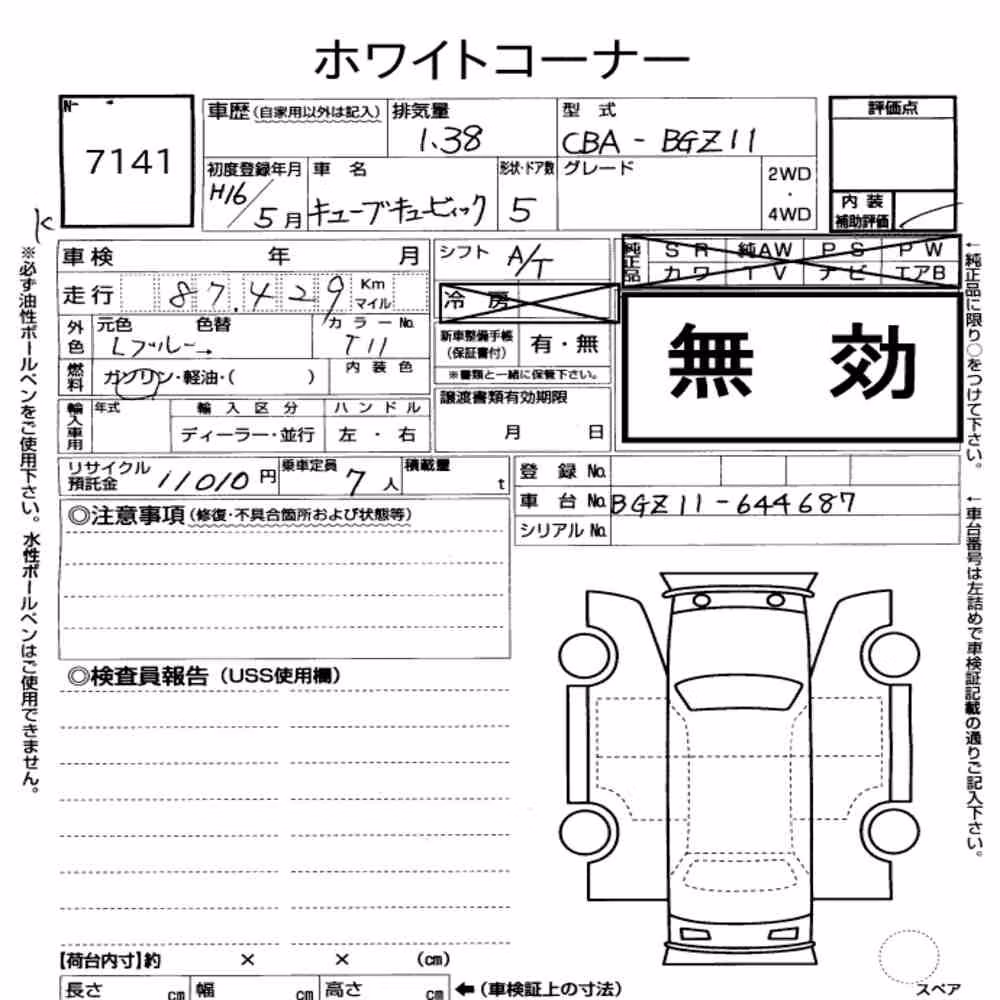 ホワイトコーナー
N-
7141
車歴(自家用以外は記入) 排気量 型式 評価点
1.38 CBA - BGZ11
初度登録年月 車名 形状・ドア数 グレード 2WD・4WD
H16/5月 キューブキュービック 5
内装補助評価
車検 年 月 シフト A/T
純正品 SR 純AW PS PW
カワ TV ナビ エアB
走行 87,429 Km マイル
冷房
外色 元色 色替 カラーNo.
Lブルー→ T11
新車整備手帳(保証書付) 有・無
※書類と一緒に保管下さい。
無効
燃料 ガソリン・軽油・( ) 内装色
輸入車用 年式 輸入区分 ハンドル
ディーラー・並行 左・右
譲渡書類有効期限
月 日
リサイクル預託金 11010円 乗車定員 7人 積載量 t
登録No.
車台No. BGZ11-644687
シリアルNo.
◎注意事項(修復・不具合箇所および状態等)
◎検査員報告(USS使用欄)
【荷台内寸】約 × × (cm)
長さ cm 幅 cm 高さ cm ←(車検証上の寸法)
スペア
※必ず油性ボールペンをご使用下さい。水性ボールペンはご使用できません。
←純正品に限り○をつけて下さい。
←車台番号は左詰めで車検証記載の通りご記入下さい。